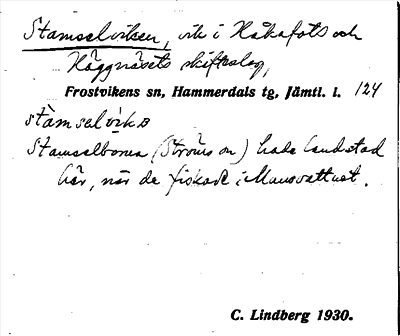 Stamselviken, vik i Håkafots och
Häggnäsets skifteslag,
Frostvikens sn, Hammerdals tg, Jämtl. l. 124
stàmselvìkɐ
Stamselborna (Ströms sn) hade landstad
här, när de fiskade i Mausvattnet.
C. Lindberg 1930.